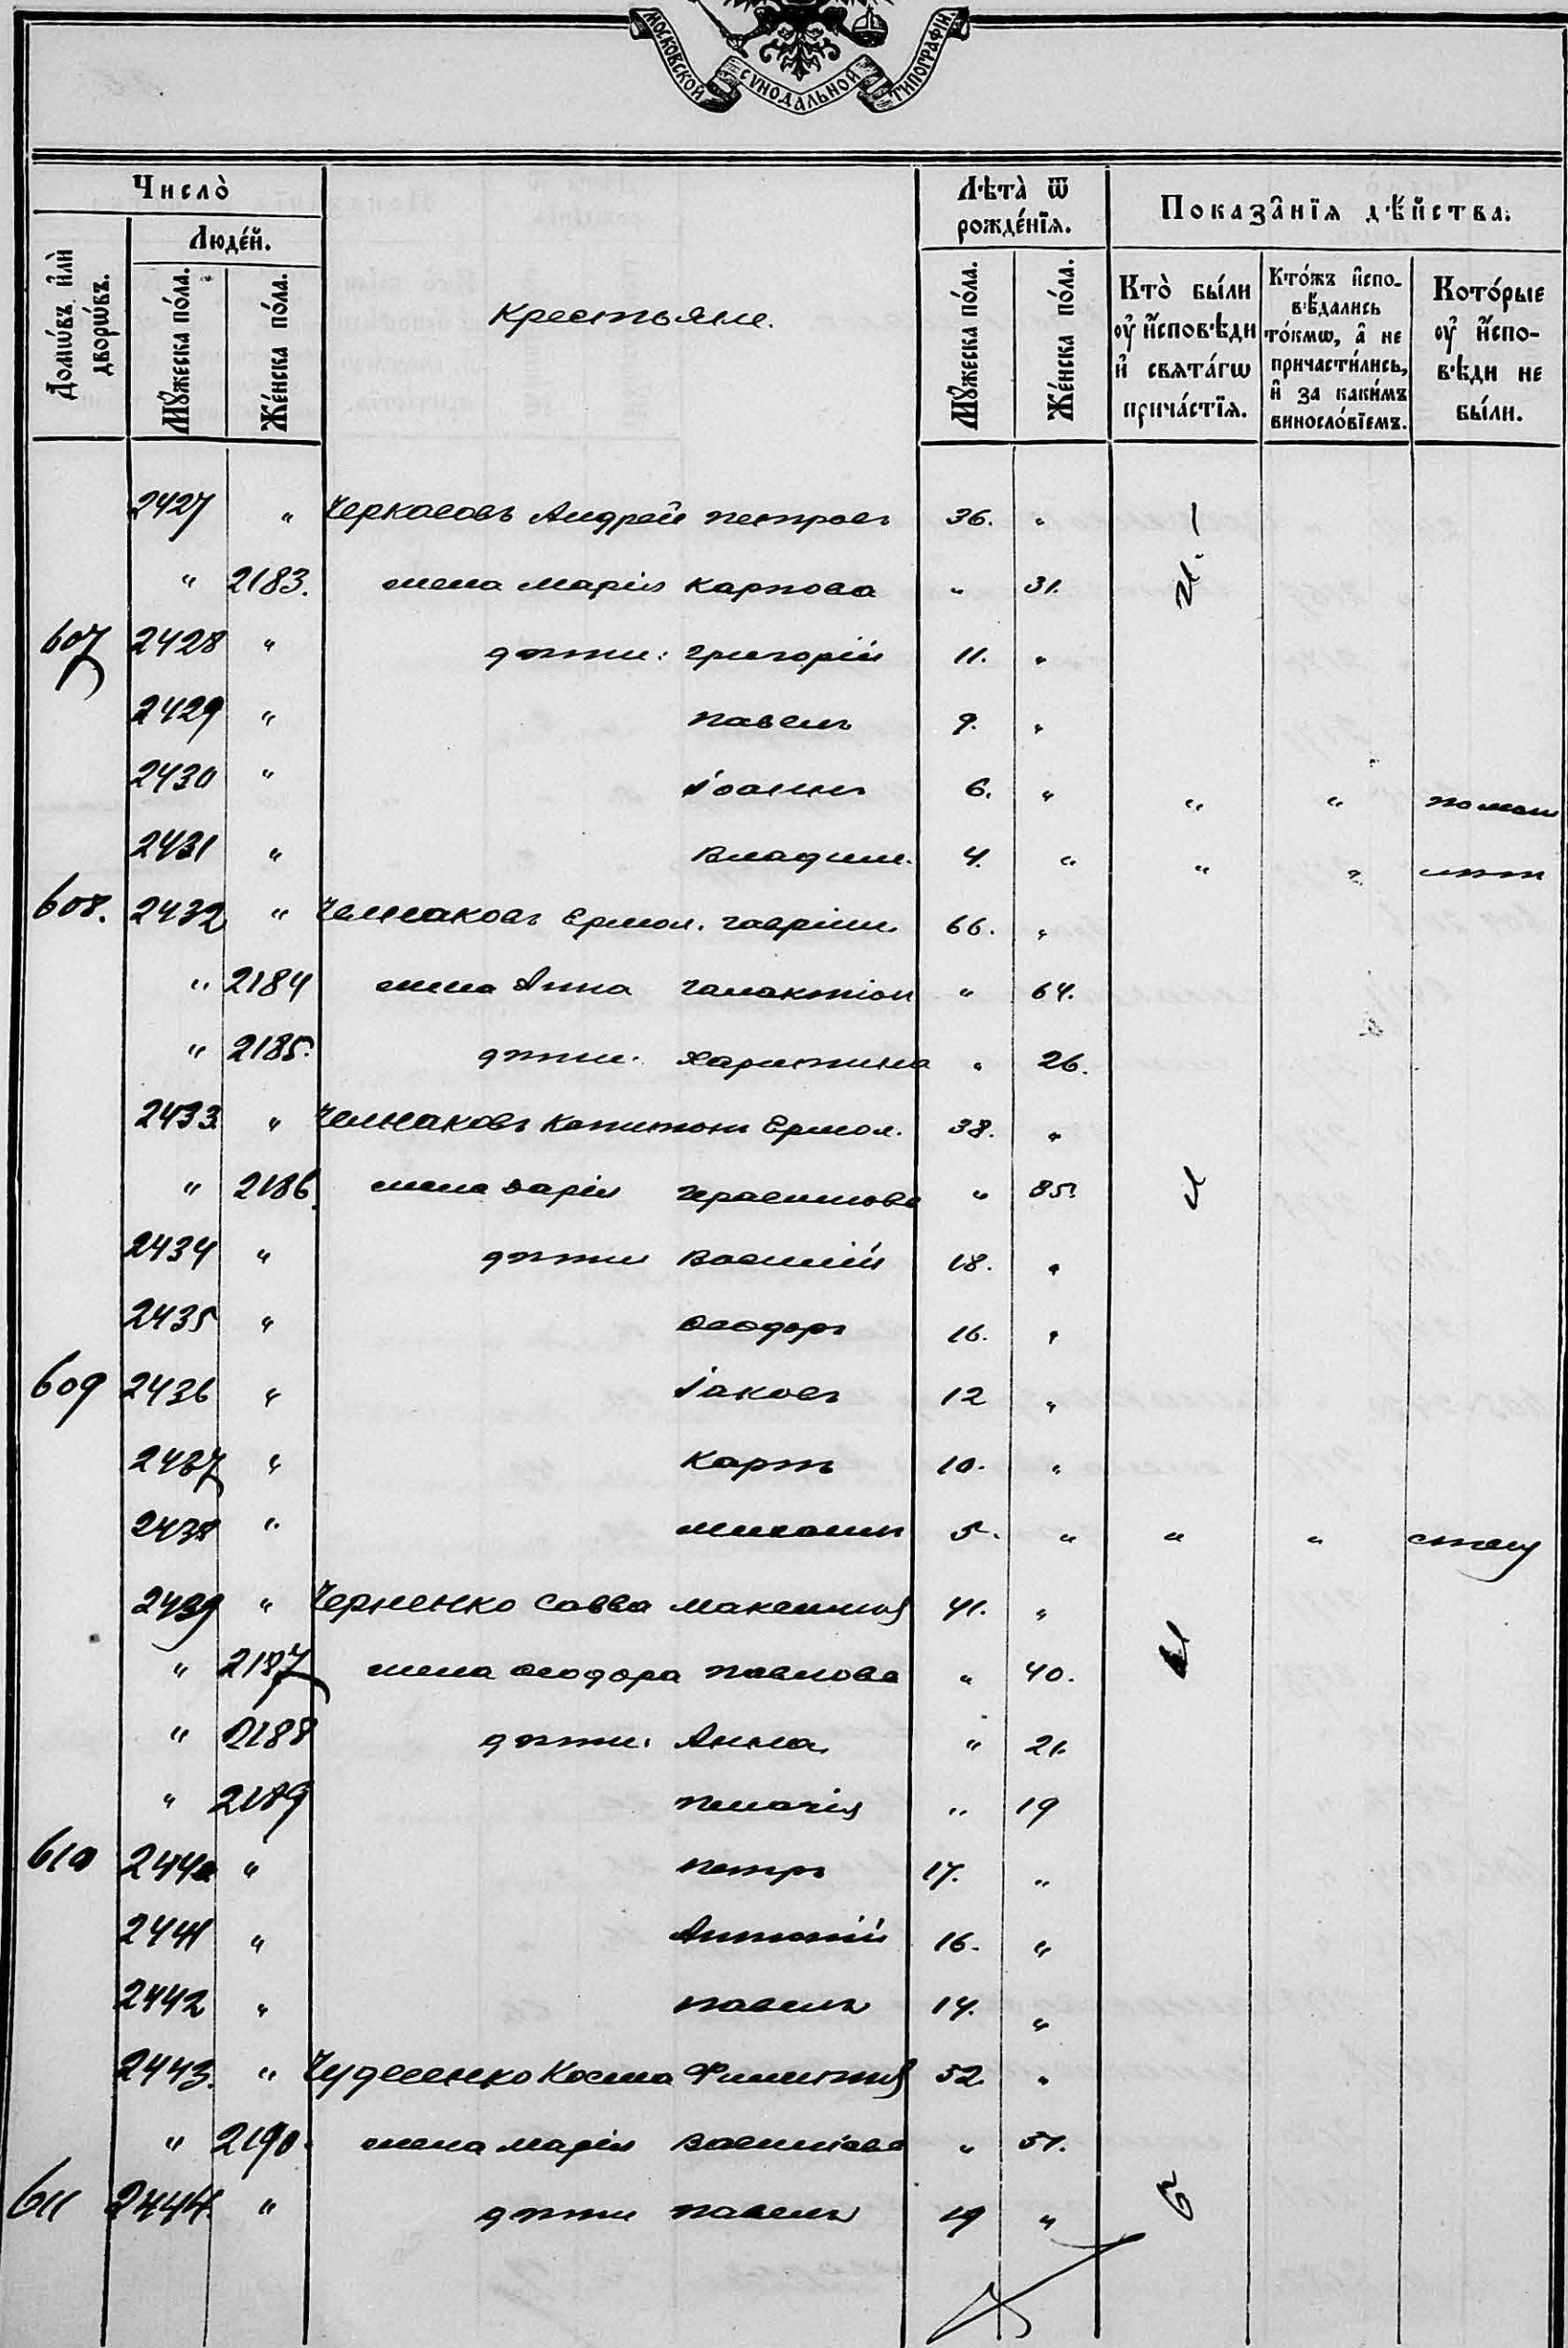 МОСКОВСКОЙ СѴНОДАЛЬНОЙ ТИПОГРАФІИ
Число̀
Людéй.
Домѡ́въ и҆лѝ дворѡ́въ.
Мꙋ́жеска пóла.
Жéнска пóла.
Крестьяне.
Лѣта̀ ѿ рождéнїѧ.
Мꙋ́жеска пóла.
Жéнска пóла.
Показа̑нїѧ дѣ́йства.
Ктò бы́ли ᲂу҆ и҆́сповѣди и҆ свѧта́гѡ прича́стїѧ.
Кто́жъ и҆сповѣ́дались то́кмѡ, а҆ не причасти́лись, и҆ за каки́мъ винослóвїемъ.
Кото́рые ᲂу҆ и҆́сповѣди не бы́ли.
2427 " Черкасовъ Андрей Петровъ 36. "
" 2183. жена Марія Карпова " 31.
607 2428 " дѣти: Григорій 11. "
2429 " Павелъ 9. "
2430 " Іоаннъ 6. " " "
2431 " Владим. 4. " " "
608. 2432 " Челнаковъ Ермол. Гавріил. 66. "
" 2184 жена Анна Галактіон " 64.
" 2185. дѣти: Харитина " 26.
2433 " Челнаковъ Капитонъ Ермол. 38. "
" 2186. жена Дарія Герасимова " 35.
2434 " дѣти Василій 18. "
2435 " Ѳеодоръ 16. "
609 2436 " Іаковъ 12 "
2437 " Карпъ 10. "
2438 " Михаилъ 5. " " "
2439 " Черненко Савва Максимов 41. "
" 2187 жена Ѳеодора Павлова " 40.
" 2188 дѣти: Анна " 21.
" 2189 Пелагія " 19
610 2440 " Петръ 17. "
2441 " Антоній 16. "
2442 " Павелъ 14. "
2443. " Чудненко Косма Филиппов 52. "
" 2190. жена Марія Василіева " 51.
611 2444. " дѣти Павелъ 19 "